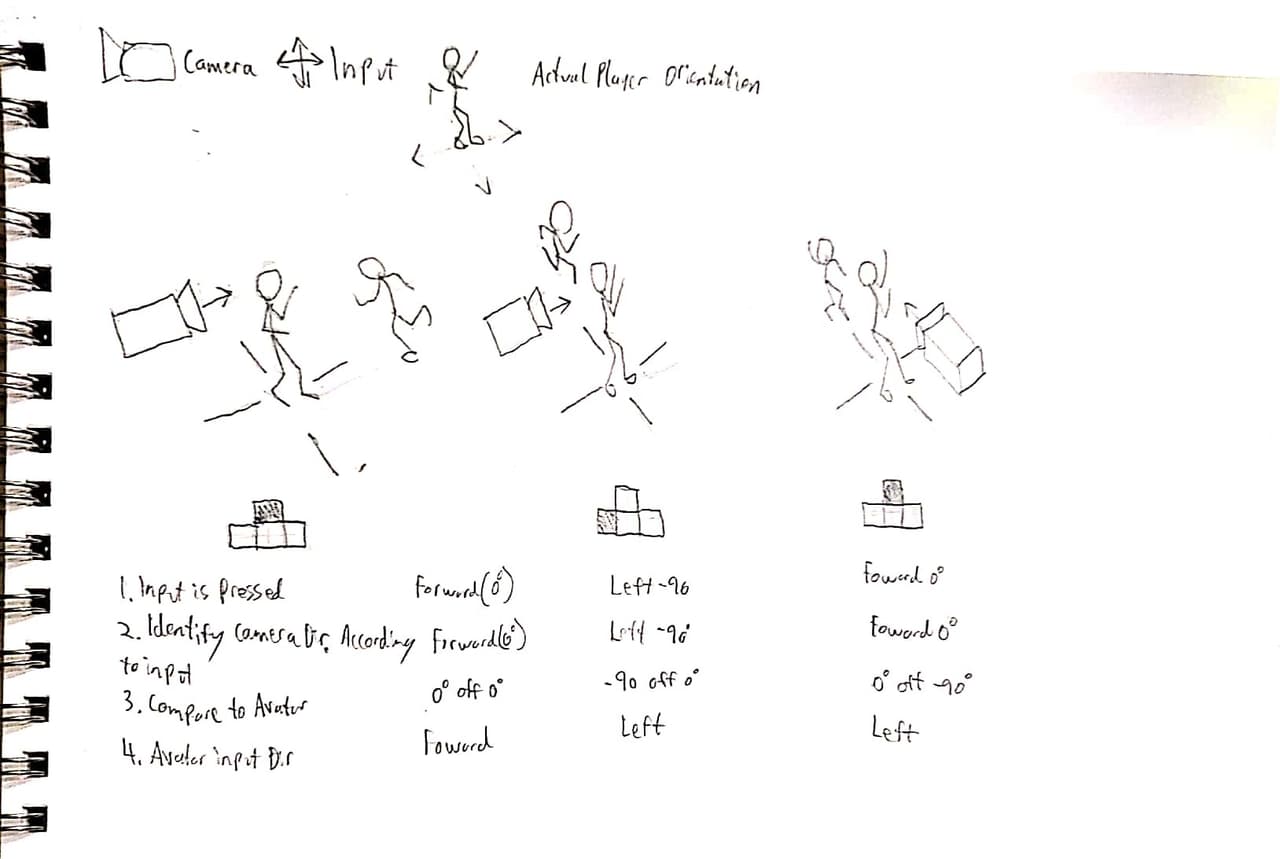 Camera Input Actual Player Orientation
1. Input is Pressed Forword(0°) Left -90 Foward 0°
2. Identify Camera Dir, According Forword(0°) Left -90° Foward 0°
to input
3. Compare to Avatar 0° off 0° -90 off 0° 0° off -90°
4. Avatar input Dir Foword Left Left